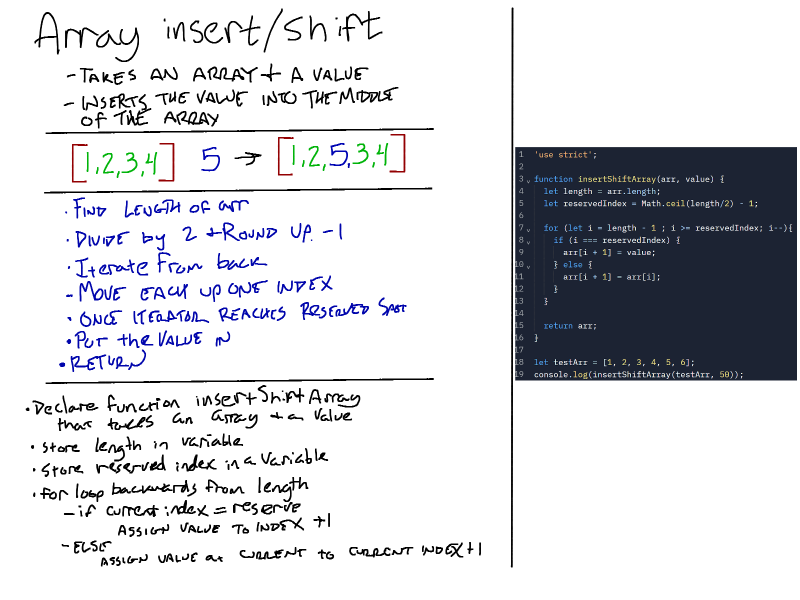 Array insert/shift
- TAKES AN ARRAY + A VALUE
- INSERTS THE VALUE INTO THE MIDDLE
OF THE ARRAY
[1,2,3,4] 5 → [1,2,5,3,4]
· FIND LENGTH OF arr
· DIVIDE by 2 + ROUND UP. -1
· Iterate From back
- MOVE EACH UP ONE INDEX
· ONCE ITERATOR REACHES RESERVED SPOT
· PUT the VALUE IN
· RETURN
· Declare function insertShiftArray
that takes an array + a value
· Store length in variable
· Store reserved index in a variable
· for loop backwards from length
- if current index = reserve
ASSIGN VALUE TO INDEX +1
- ELSE
ASSIGN VALUE at CURRENT to CURRENT INDEX+1
1 'use strict';
2
3 function insertShiftArray(arr, value) {
4 let length = arr.length;
5 let reservedIndex = Math.ceil(length/2) - 1;
6
7 for (let i = length - 1 ; i >= reservedIndex; i--){
8 if (i === reservedIndex) {
9 arr[i + 1] = value;
10 } else {
11 arr[i + 1] = arr[i];
12 }
13 }
14
15 return arr;
16 }
17
18 let testArr = [1, 2, 3, 4, 5, 6];
19 console.log(insertShiftArray(testArr, 50));